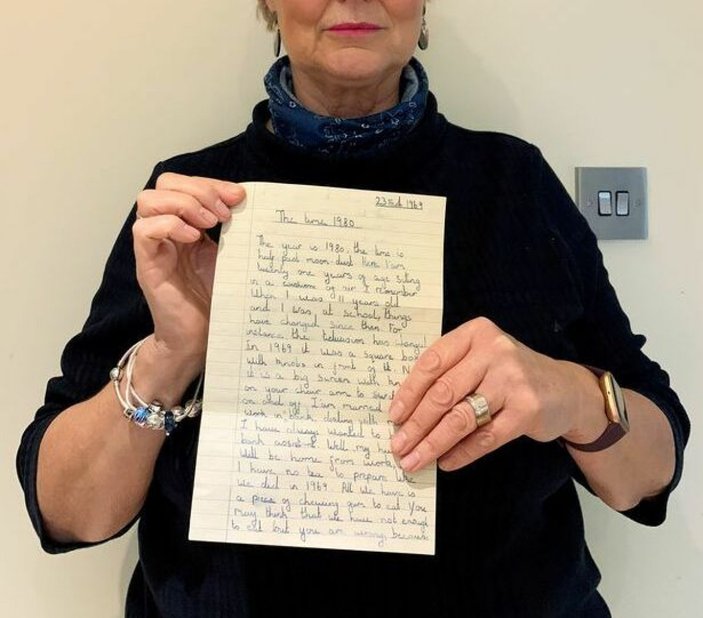 23rd 1969
The time 1980
The year is 1980, the time is
half past moon dust. Here I am
twenty one years of age siting
in a of air I remember
When I was 11 years old
and I was at school, things
have changed since then. For
instance the television has changed
In 1969 it was a square box
with knobs in front of it. N
it is a big screen with kn
on your chair arm to turn it
on and off. I am married
work in bank dealing with
I have always wanted to
bank assist Well my hu
will be home from work
I have no tea to prepare like
we did in 1969. All we have is
a piece of chewing gum to eat. You
may think that we have not enough
to eat but you are wrong because